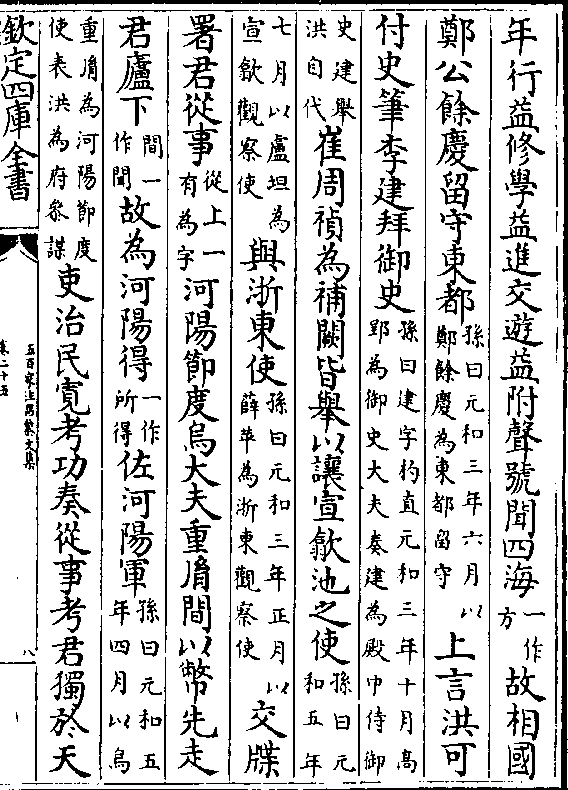 年行益修學益進交遊益附聲號聞四海一作方故相國
鄭公餘慶留守東都孫曰元和三年六月以鄭餘慶為東都留守上言洪可
付史筆李建拜御史孫曰建字杓直元和三年十月高郢為御史大夫奏建為殿中侍御
史建舉洪自代崔周禎為補闕皆舉以讓宣歙池之使孫曰元和五年
七月以盧坦為宣歙觀察使與浙東使孫曰元和三年正月以薛苹為浙東觀察使交牒
署君從事從上一有為字河陽節度烏大夫重胤間以幣先走
君廬下間一作聞故為河陽得一作所得佐河陽軍孫曰元和五年四月以烏
重胤為河陽節度使表洪為府參謀吏治民寛考功奏從事考君獨於天
欽定四庫全書
五百家注昌黎文集
卷二十五
八